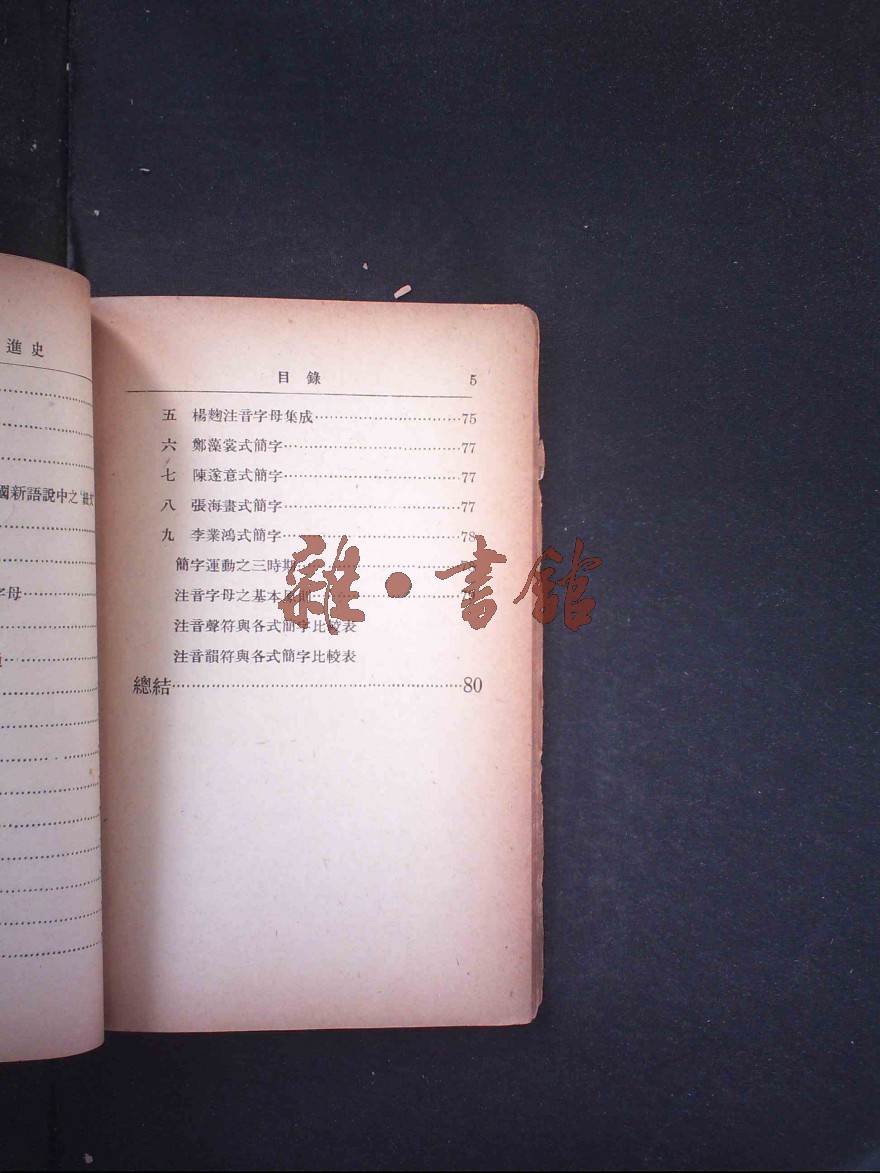 進史
國新語說中之
字母
目錄 5
五 楊麴注音字母集成 75
六 鄭藻裳式簡字 77
七 陳遂意式簡字 77
八 張海畫式簡字 77
九 李業鴻式簡字 78
簡字運動之三時期
注音字母之基本原則
注音聲符與各式簡字比較表
注音韻符與各式簡字比較表
總結 80
雜·書館